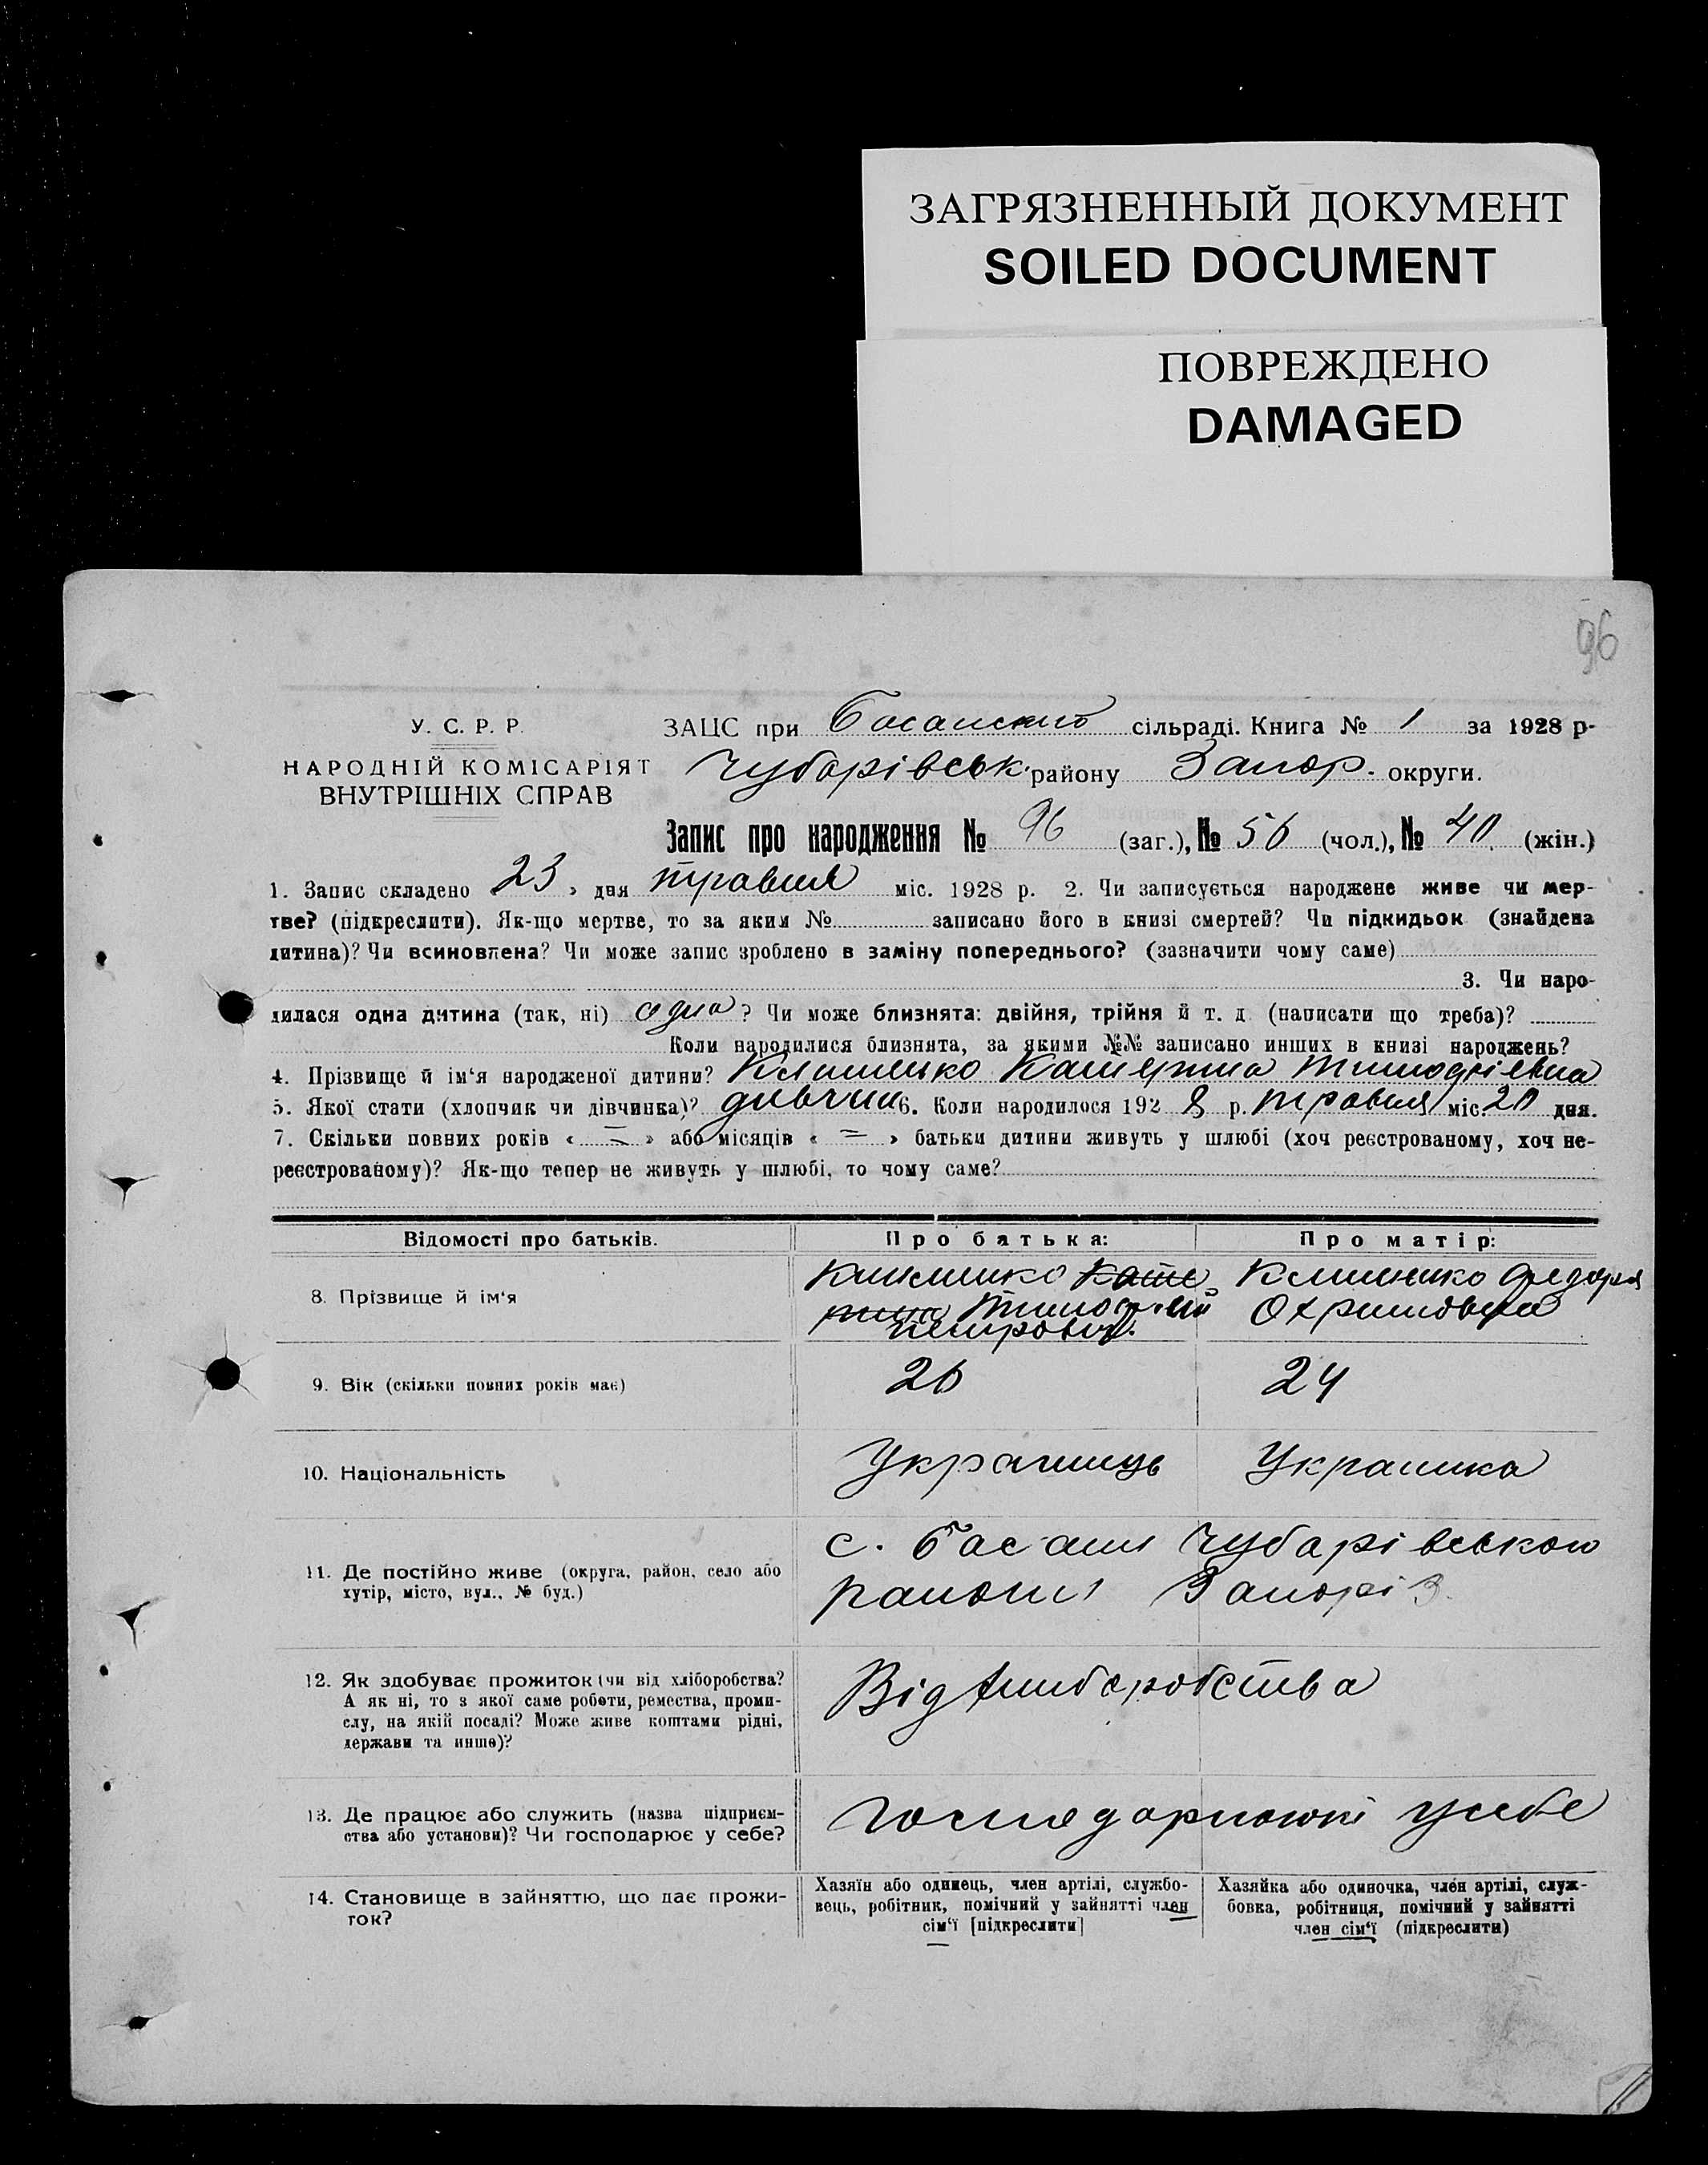 ЗАГРЯЗНЕННЫЙ ДОКУМЕНТ
SOILED DOCUMENT
ПОВРЕЖДЕНО
DAMAGED
96
У. С. Р. Р.
НАРОДНІЙ КОМІСАРІЯТ
ВНУТРІШНІХ СПРАВ
ЗАЦС при Басанській сільраді. Книга № 1 за 1928 р-
Чубарівськ. району Запор. округи.
Запис про народження № 96 (заг.), № 56 (чол.), № 40. (жін.)
1. Запис складено « 23 » дня травня міс. 1928 р. 2. Чи записується народжене живе чи мер-
тве? (підкреслити). Як-що мертве, то за яким № записано його в книзі смертей? Чи підкидьок (знайдена
дитина)? Чи всиновлена? Чи може запис зроблено в заміну попереднього? (зазначити чому саме)
3. Чи наро-
дилася одна дитина (так, ні) одна? Чи може близнята: двійня, трійня й т. д. (написати що треба)?
Коли народилися близнята, за якими №№ записано инших в книзі народжень?
4. Прізвище й ім'я народженої дитини? Клименко Катерина Тимофіевна
5. Якої стати (хлопчик чи дівчинка)? дівчин 6. Коли народилося 192 8 р. травня міс. 20 дня.
7. Скільки повних років « = » або місяців « = » батьки дитини живуть у шлюбі (хоч реєстрованому, хоч не-
реєстрованому)? Як-що тепер не живуть у шлюбі, то чому саме?
Відомості про батьків.
Про батька:
Про матір:
8. Прізвище й ім'я
Клименко Кате
рина Тимофій
Петрович.
Клименко Федора
Охримовна
9. Вік (скільки повних років має)
26
24
10. Національність
Українець
Українка
11. Де постійно живе (округа, район, село або
хутір, місто, вул., № буд.)
с. Басань Чубарівського
району Запоріз.
12. Як здобуває прожиток (чи від хліборобства?
А як ні, то з якої саме роботи, ремества, проми-
слу, на якій посаді? Може живе коштами рідні,
держави та инше)?
Від хліборобства
13. Де працює або служить (назва підприєм-
ства або установи)? Чи господарює у себе?
господарюють у себе
14. Становище в зайняттю, що дає прожи-
ток?
Хазяїн або одинець, член артілі, службо-
вець, робітник, помічний у зайнятті член
сім'ї [підкреслити]
Хазяйка або одиночка, член артілі, служ-
бовка, робітниця, помічний у зайнятті
член сім'ї (підкреслити)